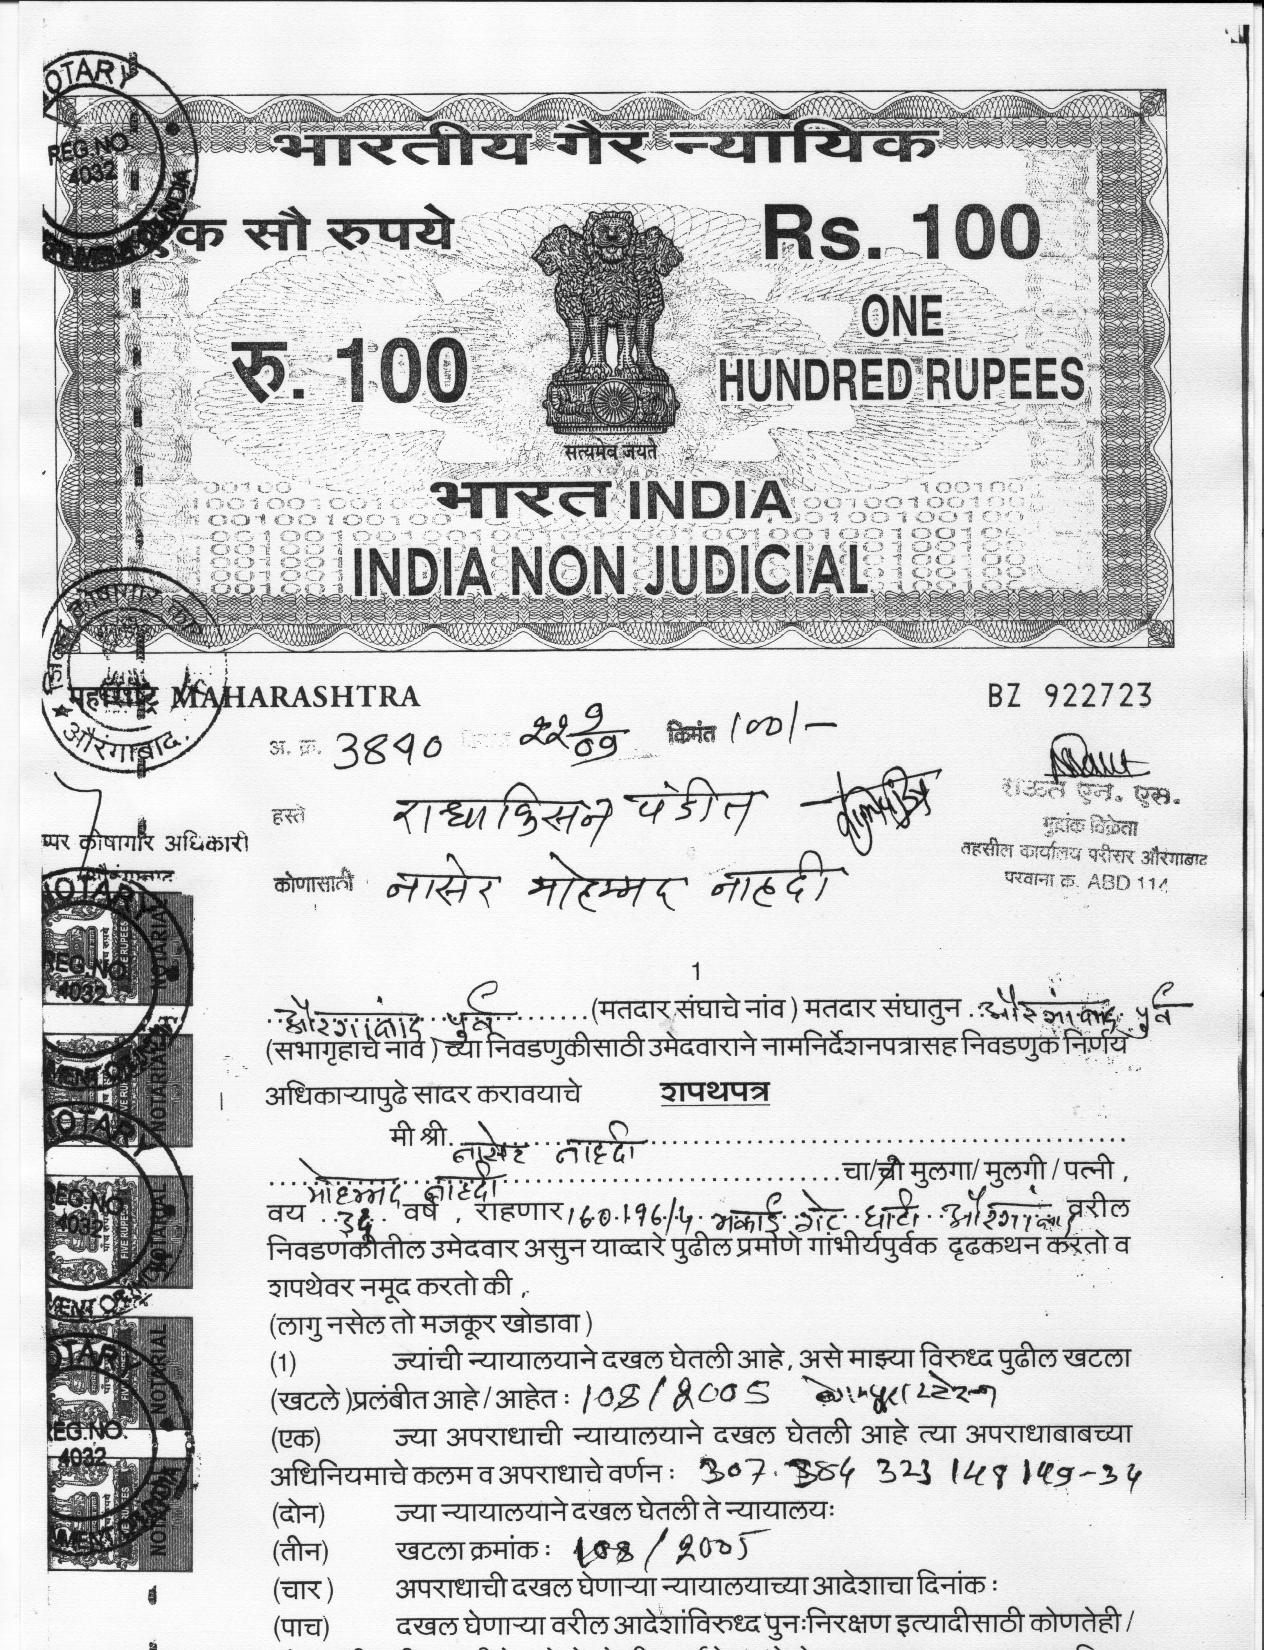 NOTARY
REG.NO.
4032
भारतीय गैर न्यायिक
एक सौ रुपये
Rs. 100
रु. 100
ONE
HUNDRED RUPEES
सत्यमेव जयते
भारत INDIA
INDIA NON JUDICIAL
महाराष्ट्र MAHARASHTRA
BZ 922723
औरंगाबाद.
अ. क्र. 3890
किंमत 100/-
हस्ते राधाकिसन पंडीत
राऊत एन. एस.
मुद्रांक विक्रेता
तहसील कार्यालय परीसर औरंगाबाद
परवाना क्र. ABD 114
कोषागार अधिकारी
कोणासाठी नासेर मोहम्मद नाहदी
NOTARY
REG.NO.
4032
NOTARIAL
1
औरंगाबाद पुर्व (मतदार संघाचे नांव ) मतदार संघातुन औरंगाबाद पुर्व
(सभागृहाचे नाव ) च्या निवडणुकीसाठी उमेदवाराने नामनिर्देशनपत्रासह निवडणुक निर्णय
अधिकाऱ्यापुढे सादर करावयाचे शपथपत्र
मी श्री. नासेर नाहदी
मोहम्मद नाहदी चा/ची मुलगा/ मुलगी / पत्नी ,
वय 36 वर्षे , राहणार औरंगाबाद वरील
निवडणकीतील उमेदवार असुन याव्दारे पुढील प्रमाणे गांभीर्यपुर्वक दृढकथन करतो व
शपथेवर नमूद करतो की ,
(लागु नसेल तो मजकूर खोडावा )
(1) ज्यांची न्यायालयाने दखल घेतली आहे , असे माझ्या विरुध्द पुढील खटला
(खटले )प्रलंबीत आहे / आहेत : 108/2005
(एक) ज्या अपराधाची न्यायालयाने दखल घेतली आहे त्या अपराधाबाबच्या
अधिनियमाचे कलम व अपराधाचे वर्णन : 307. 384 323 148 149-34
(दोन) ज्या न्यायालयाने दखल घेतली ते न्यायालयः
(तीन) खटला क्रमांक : 108/2005
(चार ) अपराधाची दखल घेणाऱ्या न्यायालयाच्या आदेशाचा दिनांक :
(पाच) दखल घेणाऱ्या वरील आदेशांविरुध्द पुनःनिरक्षण इत्यादीसाठी कोणतेही /